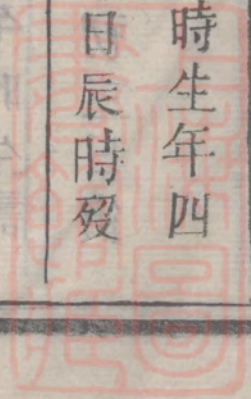 時生年四
日辰時歿